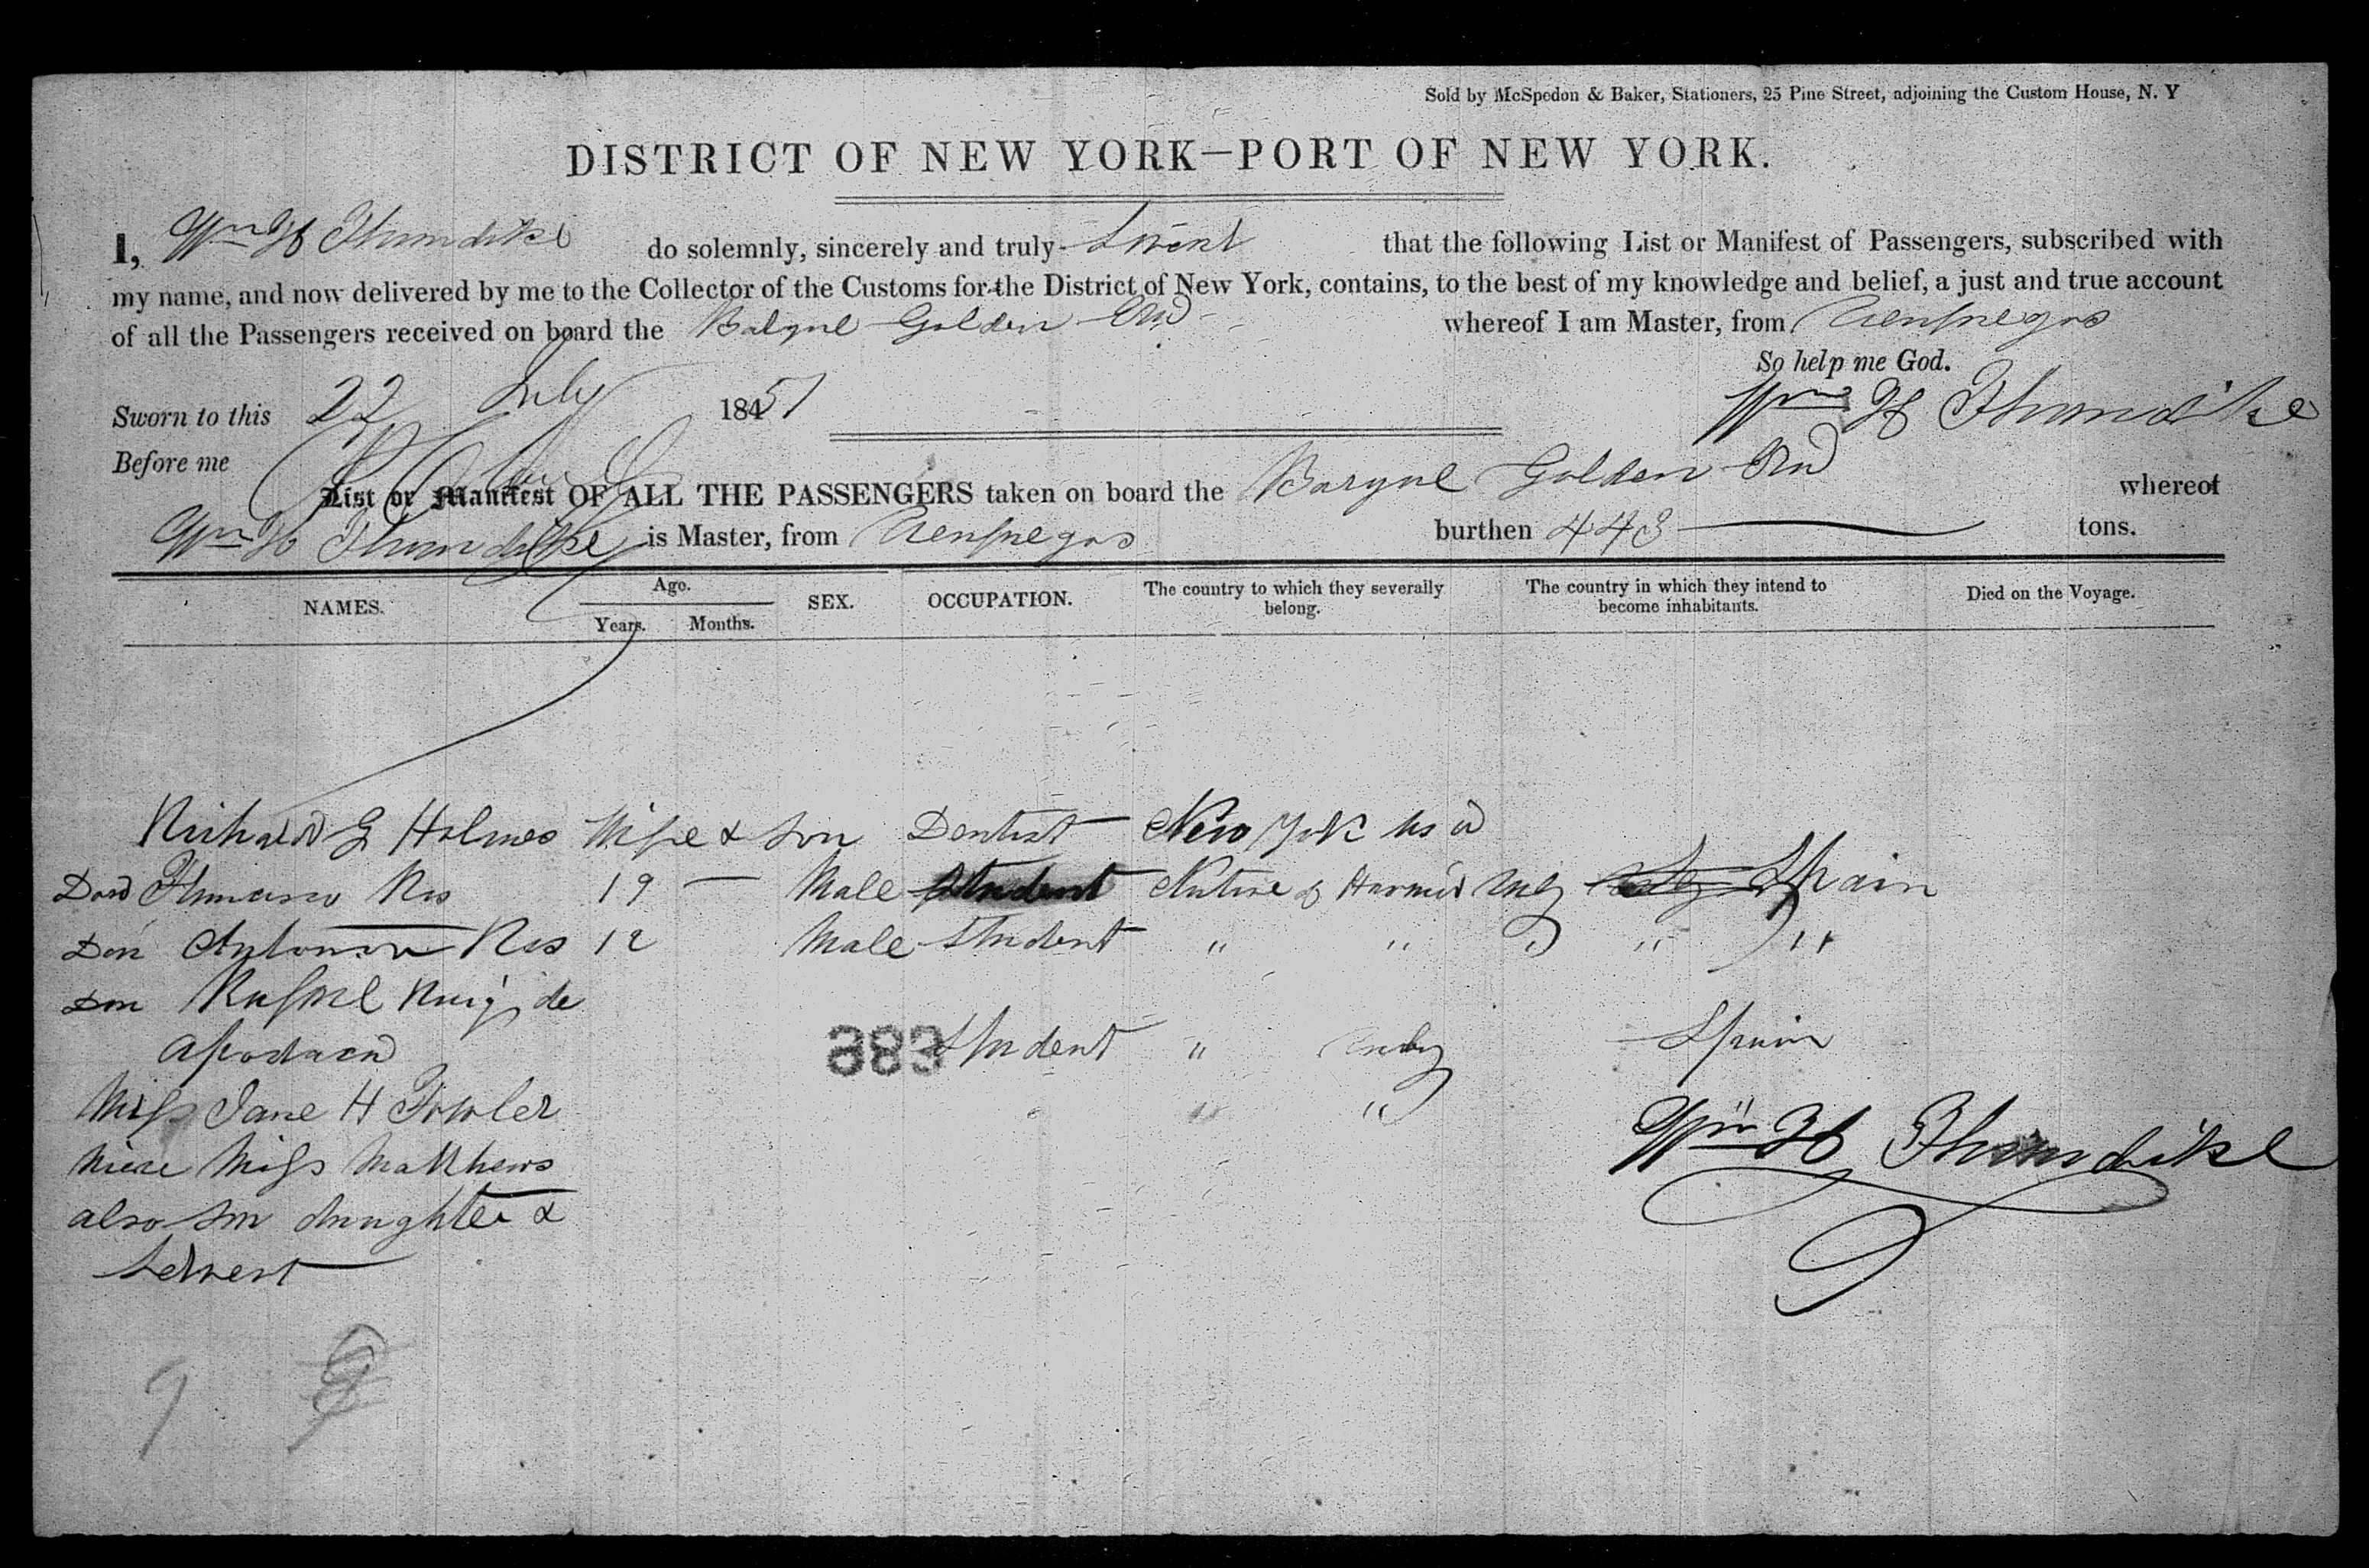 Sold by McSpedon & Baker, Stationers, 25 Pine Street, adjoining the Custom House, N. Y
DISTRICT OF NEW YORK—PORT OF NEW YORK.
I, Wm H Thorndike do solemnly, sincerely and truly swear that the following List or Manifest of Passengers, subscribed with
my name, and now delivered by me to the Collector of the Customs for the District of New York, contains, to the best of my knowledge and belief, a just and true account
of all the Passengers received on board the Barque Golden Era whereof I am Master, from Cienfuegos
So help me God.
Sworn to this 22 July 1851 Wm H Thorndike
Before me
List or Manifest OF ALL THE PASSENGERS taken on board the Barque Golden Era whereof
Wm H Thorndike is Master, from Cienfuegos burthen 443 tons.
NAMES. Age. Years. Months. SEX. OCCUPATION. The country to which they severally belong. The country in which they intend to become inhabitants. Died on the Voyage.
Richard G Holmes Wife & Son Dentist New York
Don Francisco 19 Male Student Native of Spain
Don Antonio 12 Male Student " " " " "
Don Rafael Ruiz de
Apodaca 383 Student " Cuba Spain
Miss Jane H Fowler " " "
Niece Miss Matthews Wm H Thorndike
also son daughter &
Servent
9